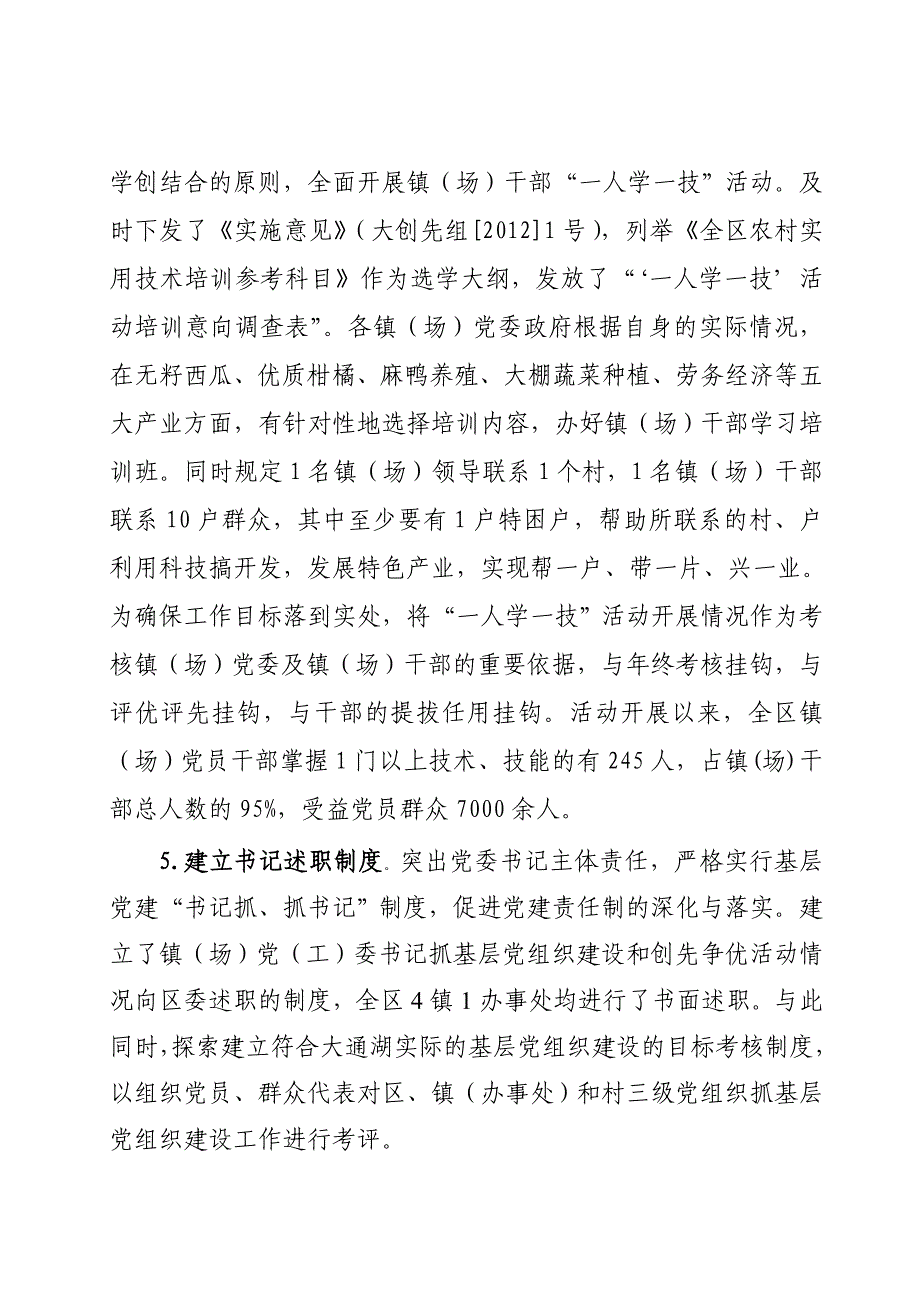 学创结合的原则，全面开展镇（场）干部“一人学一技”活动。及
时下发了《实施意见》（大创先组[2012]1号），列举《全区农村实
用技术培训参考科目》作为选学大纲，发放了“‘一人学一技’活
动培训意向调查表”。各镇（场）党委政府根据自身的实际情况，
在无籽西瓜、优质柑橘、麻鸭养殖、大棚蔬菜种植、劳务经济等五
大产业方面，有针对性地选择培训内容，办好镇（场）干部学习培
训班。同时规定1名镇（场）领导联系1个村，1名镇（场）干部
联系10户群众，其中至少要有1户特困户，帮助所联系的村、户
利用科技搞开发，发展特色产业，实现帮一户、带一片、兴一业。
为确保工作目标落到实处，将“一人学一技”活动开展情况作为考
核镇（场）党委及镇（场）干部的重要依据，与年终考核挂钩，与
评优评先挂钩，与干部的提拔任用挂钩。活动开展以来，全区镇
（场）党员干部掌握1门以上技术、技能的有245人，占镇(场)干
部总人数的95%，受益党员群众7000余人。
5.建立书记述职制度。突出党委书记主体责任，严格实行基层
党建“书记抓、抓书记”制度，促进党建责任制的深化与落实。建
立了镇（场）党（工）委书记抓基层党组织建设和创先争优活动情
况向区委述职的制度，全区4镇1办事处均进行了书面述职。与此
同时，探索建立符合大通湖实际的基层党组织建设的目标考核制度，
以组织党员、群众代表对区、镇（办事处）和村三级党组织抓基层
党组织建设工作进行考评。